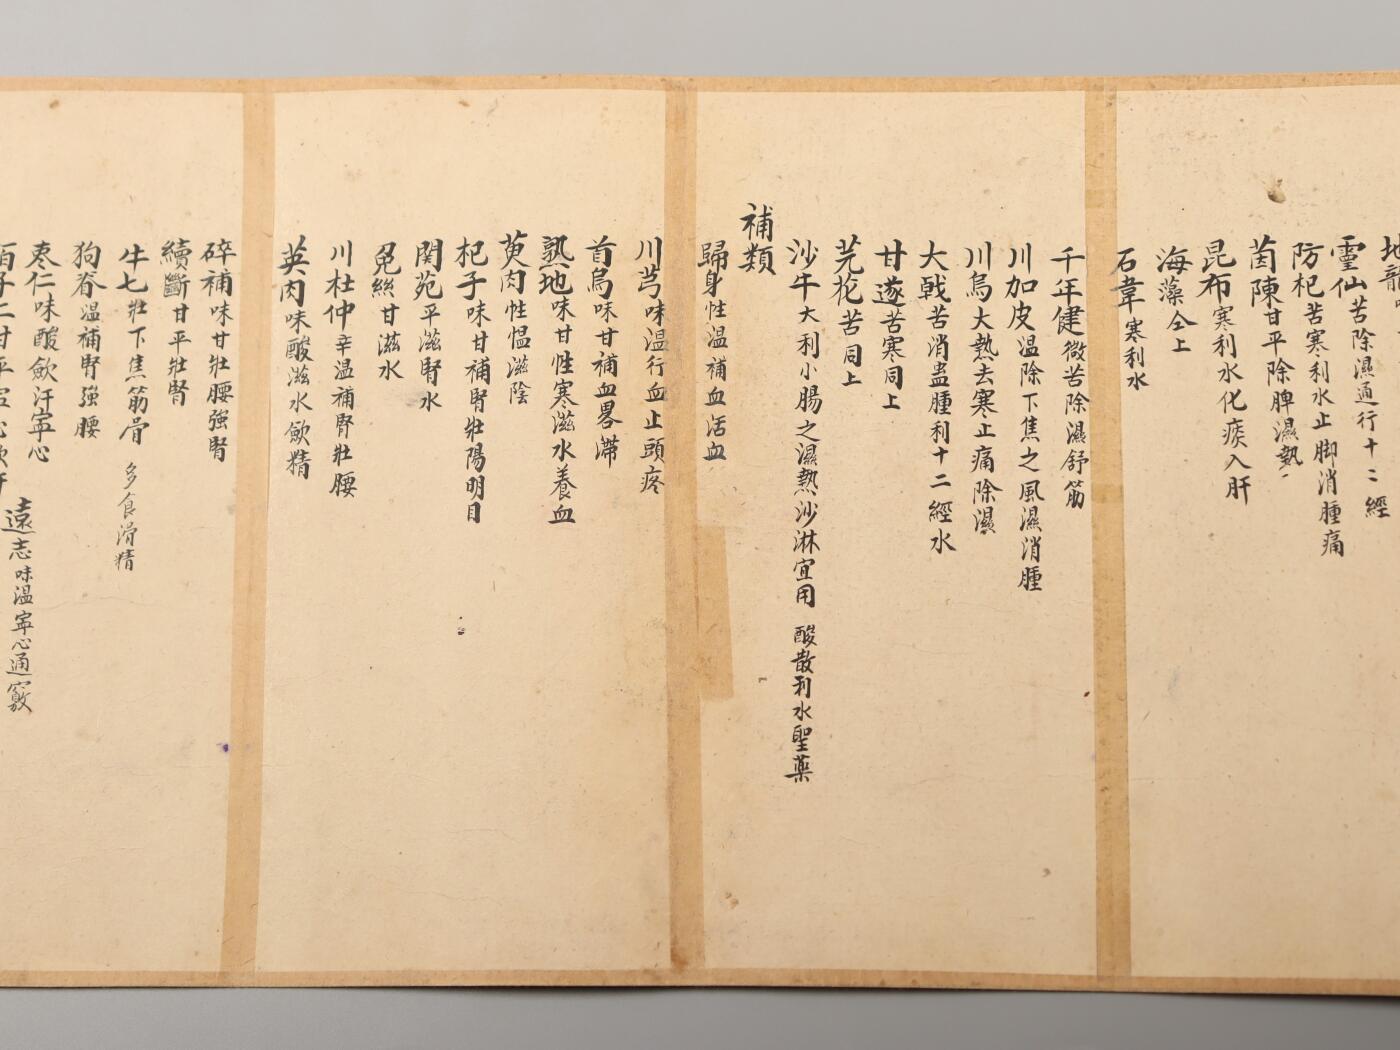 地龍
靈仙苦除濕通行十二經
防杞苦寒利水止脚消腫痛
茵陳甘平除脾濕熱
昆布寒利水化痰入肝
海藻仝上
石韋寒利水
千年健微苦除濕舒筋
川加皮温除下焦之風濕消腫
川烏大熱去寒止痛除濕
大戟苦消蛊腫利十二經水
甘遂苦寒同上
芫花苦同上
沙牛大利小腸之濕熱沙淋宜用 酸散利水聖薬
補類
歸身性温補血活血
川芎味温行血止頭疼
首烏味甘補血畧滞
熟地味甘性寒滋水養血
萸肉性愠滋陰
杞子味甘補腎壯陽明目
関苑平滋腎水
兔絲甘滋水
川杜仲辛温補腎壯腰
英肉味酸滋水歛精
碎補味甘壯腰強腎
續斷甘平壯腎
牛七壯下焦筋骨 多食滑精
狗脊温補腎強腰
枣仁味酸歛汗寧心
遠志味温寧心通竅